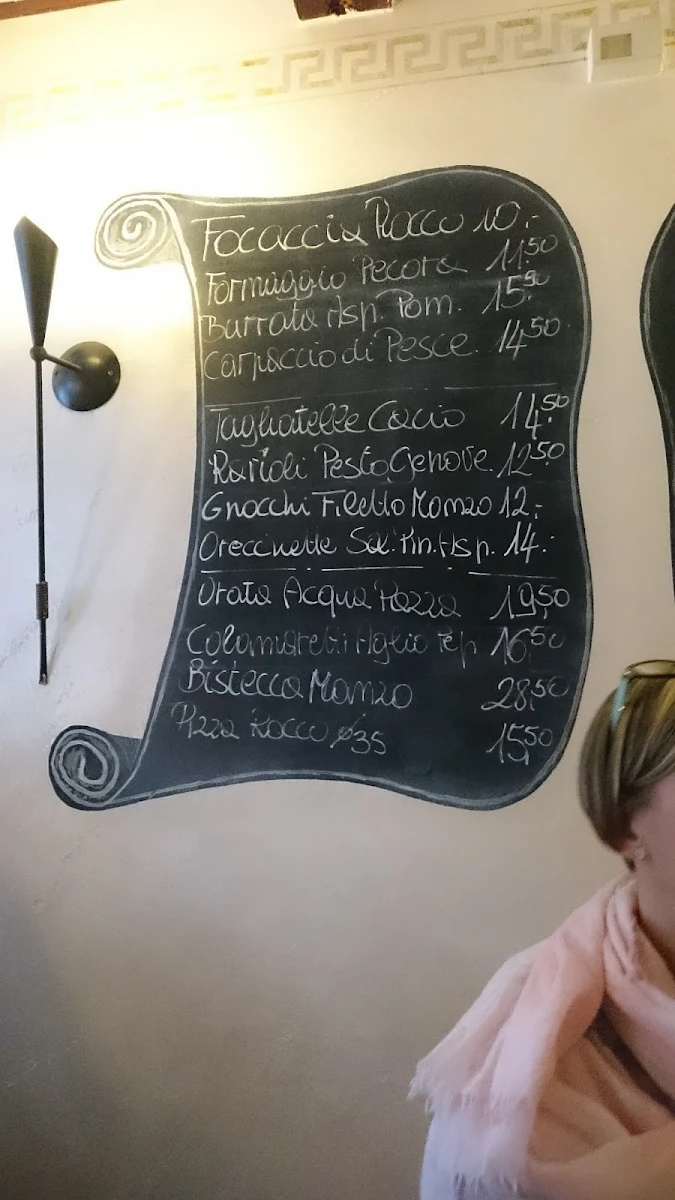 Focaccia Rocco 10,-
Formaggio Pecora 11,50
Burrata Asp. Pom. 15,50
Carpaccio di Pesce 14,50
Tagliatelle Cacio 14,50
Ravioli Pesto Genove. 12,50
Gnocchi Filetto Manzo 12,-
Oreccinette Sal. Pin. Asp. 14.-
Orata Acqua Pazza 19,50
Calamaretti Aglio Pep. 16,50
Bistecca Manzo 28,50
Pizza Rocco ø35 15,50